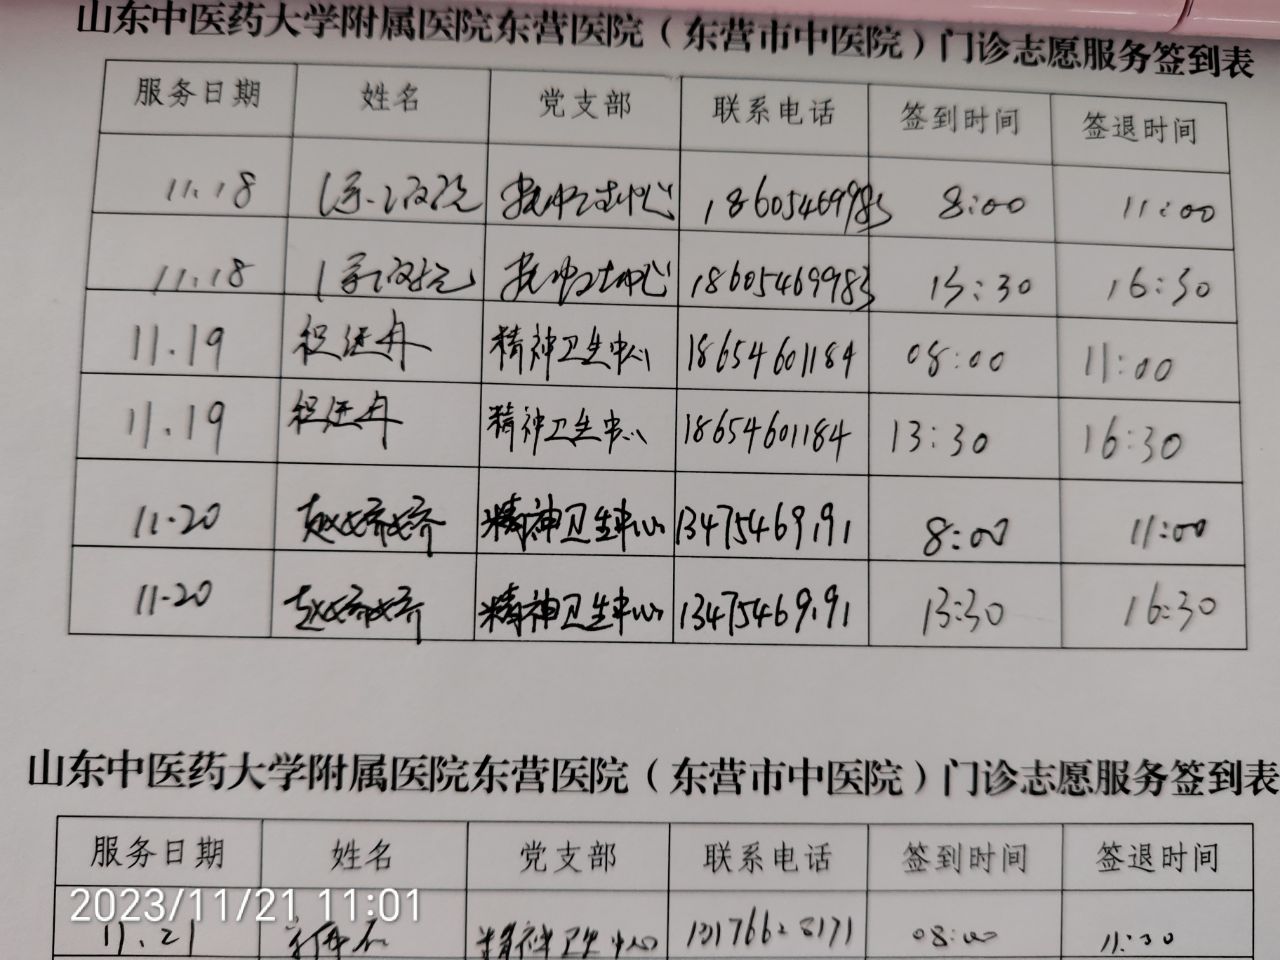 山东中医药大学附属医院东营医院（东营市中医院）门诊志愿服务签到表
服务日期 姓名 党支部 联系电话 签到时间 签退时间
11.18 18605469983 8:00 11:00
11.18 18605469983 13:30 16:30
11.19 精神卫生中心 18654601184 08:00 11:00
11.19 精神卫生中心 18654601184 13:30 16:30
11.20 赵娇娇 精神卫生中心 13475469191 8:00 11:00
11.20 赵娇娇 精神卫生中心 13475469191 13:30 16:30
山东中医药大学附属医院东营医院（东营市中医院）门诊志愿服务签到表
服务日期 姓名 党支部 联系电话 签到时间 签退时间
2023/11/21 11:01
11.21 精神卫生中心 08:00 11:30